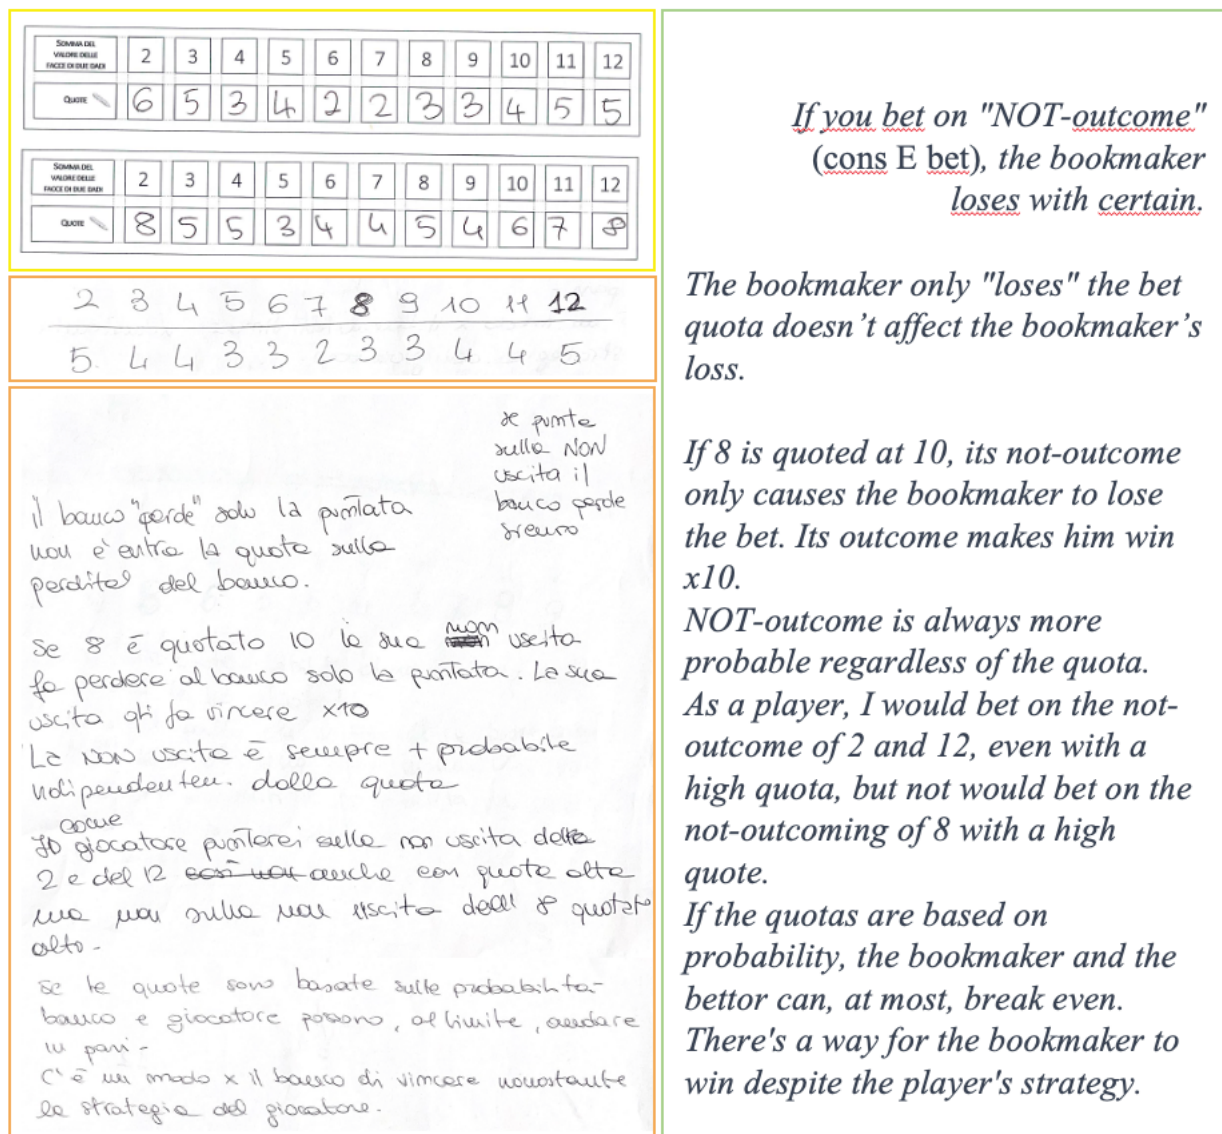 SOMMA DEL VALORE DELLE FACCE DI DUE DADI 2 3 4 5 6 7 8 9 10 11 12
QUOTE 6 5 3 4 2 2 3 3 4 5 5
SOMMA DEL VALORE DELLE FACCE DI DUE DADI 2 3 4 5 6 7 8 9 10 11 12
QUOTE 8 5 5 3 4 4 5 4 6 7 8
2 3 4 5 6 7 8 9 10 11 12
5 4 4 3 3 2 3 3 4 4 5
se punta
sulla NON
uscita il
banco perde
sicuro
il banco "perde" solo la puntata
non c'entra la quota sulla
perdita del banco.
Se 8 è quotato 10 la sua non uscita
fa perdere al banco solo la puntata. La sua
uscita gli fa vincere x10
La NON uscita è sempre + probabile
indipendentem. dalla quota
come
Io giocatore punterei sulla non uscita delle
2 e del 12 anche con quota alta
ma non sulla non uscita dell' 8 quotato
alto -
se le quote sono basate sulle probabilità
banco e giocatore possono, al limite, andare
in pari -
C'è un modo x il banco di vincere nonostante
la strategia del giocatore.
If you bet on "NOT-outcome"
(cons E bet), the bookmaker
loses with certain.
The bookmaker only "loses" the bet
quota doesn’t affect the bookmaker’s
loss.
If 8 is quoted at 10, its not-outcome
only causes the bookmaker to lose
the bet. Its outcome makes him win
x10.
NOT-outcome is always more
probable regardless of the quota.
As a player, I would bet on the not-
outcome of 2 and 12, even with a
high quota, but not would bet on the
not-outcoming of 8 with a high
quote.
If the quotas are based on
probability, the bookmaker and the
bettor can, at most, break even.
There's a way for the bookmaker to
win despite the player's strategy.